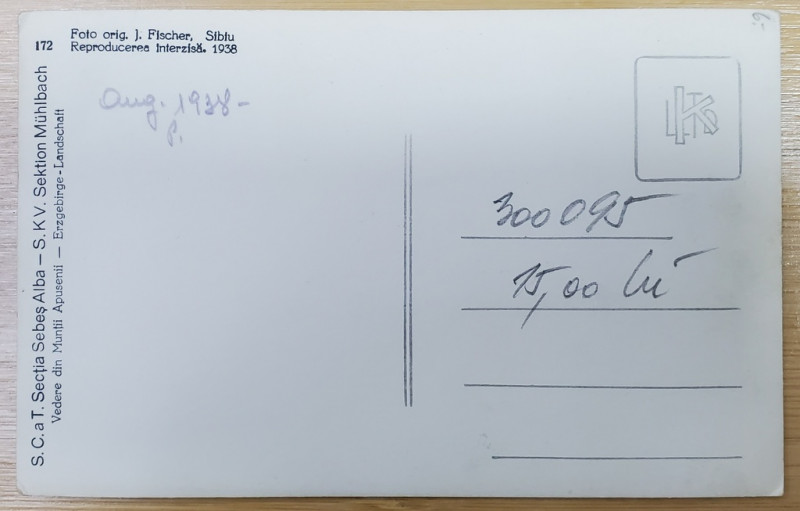 172
Foto orig. J. Fischer, Sibiu
Reproducerea interzisă. 1938
S.C.aT. Secția Sebeș Alba – S.K.V. Sektion Mühlbach
Vedere din Munții Apusenii — Erzgebirge-Landschaft
Aug. 1938-
P.
300095
15,00 lei